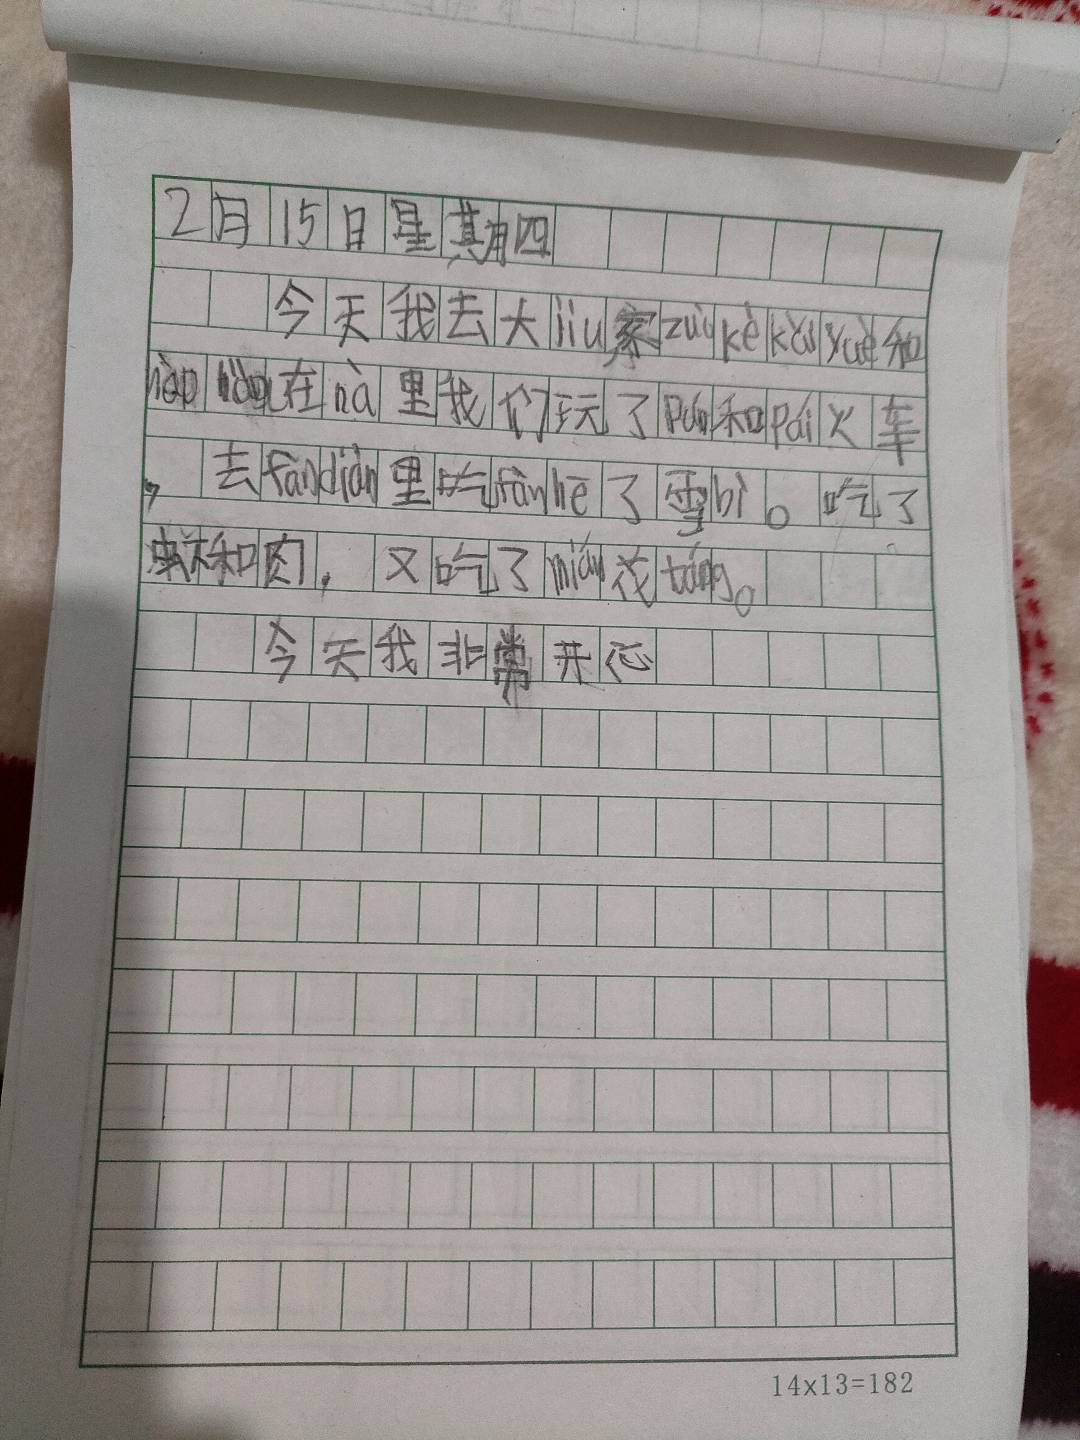 2月15日星期四
今天我去大jiu家zuò kè kěu yuè和
hàp hàp在nà里我们玩了pán和pái火车
，去fàndiàn里吃fàn hē了雪bì。吃了
虾和肉，又吃了mián花táng。
今天我非常开心
14x13=182